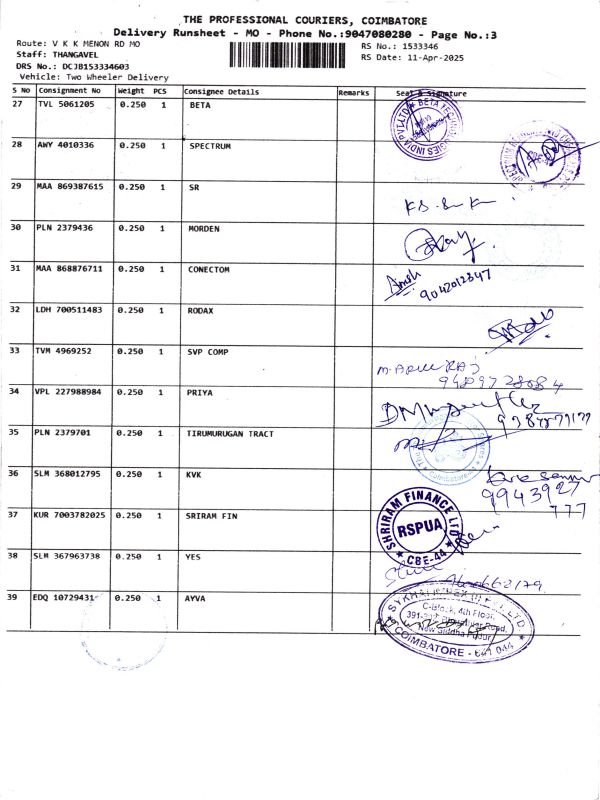 THE PROFESSIONAL COURIERS, COIMBATORE
Delivery Runsheet - MO - Phone No.:9047080280 - Page No.:3
Route: V K K MENON RD MO RS No.: 1533346
Staff: THANGAVEL RS Date: 11-Apr-2025
DRS No.: DCJB153334603
Vehicle: Two Wheeler Delivery
S No Consignment No Weight PCS Consignee Details Remarks Seal & Signature
27 TVL 5061205 0.250 1 BETA
28 AWY 4010336 0.250 1 SPECTRUM
29 MAA 869387615 0.250 1 SR
30 PLN 2379436 0.250 1 MORDEN
31 MAA 868876711 0.250 1 CONECTOM
9042012847
32 LDH 700511483 0.250 1 RODAX
33 TVM 4969252 0.250 1 SVP COMP
34 VPL 227988984 0.250 1 PRIYA
35 PLN 2379701 0.250 1 TIRUMURUGAN TRACT
36 SLM 368012795 0.250 1 KVK
9943927
777
37 KUR 7003782025 0.250 1 SRIRAM FIN
SHRIRAM FINANCE LTD
RSPUA
CBE-44
38 SLM 367963738 0.250 1 YES
39 EDQ 10729431 0.250 1 AYVA
C-Block, 4th Floor,
New Siddha Pudur
COIMBATORE - 641 044